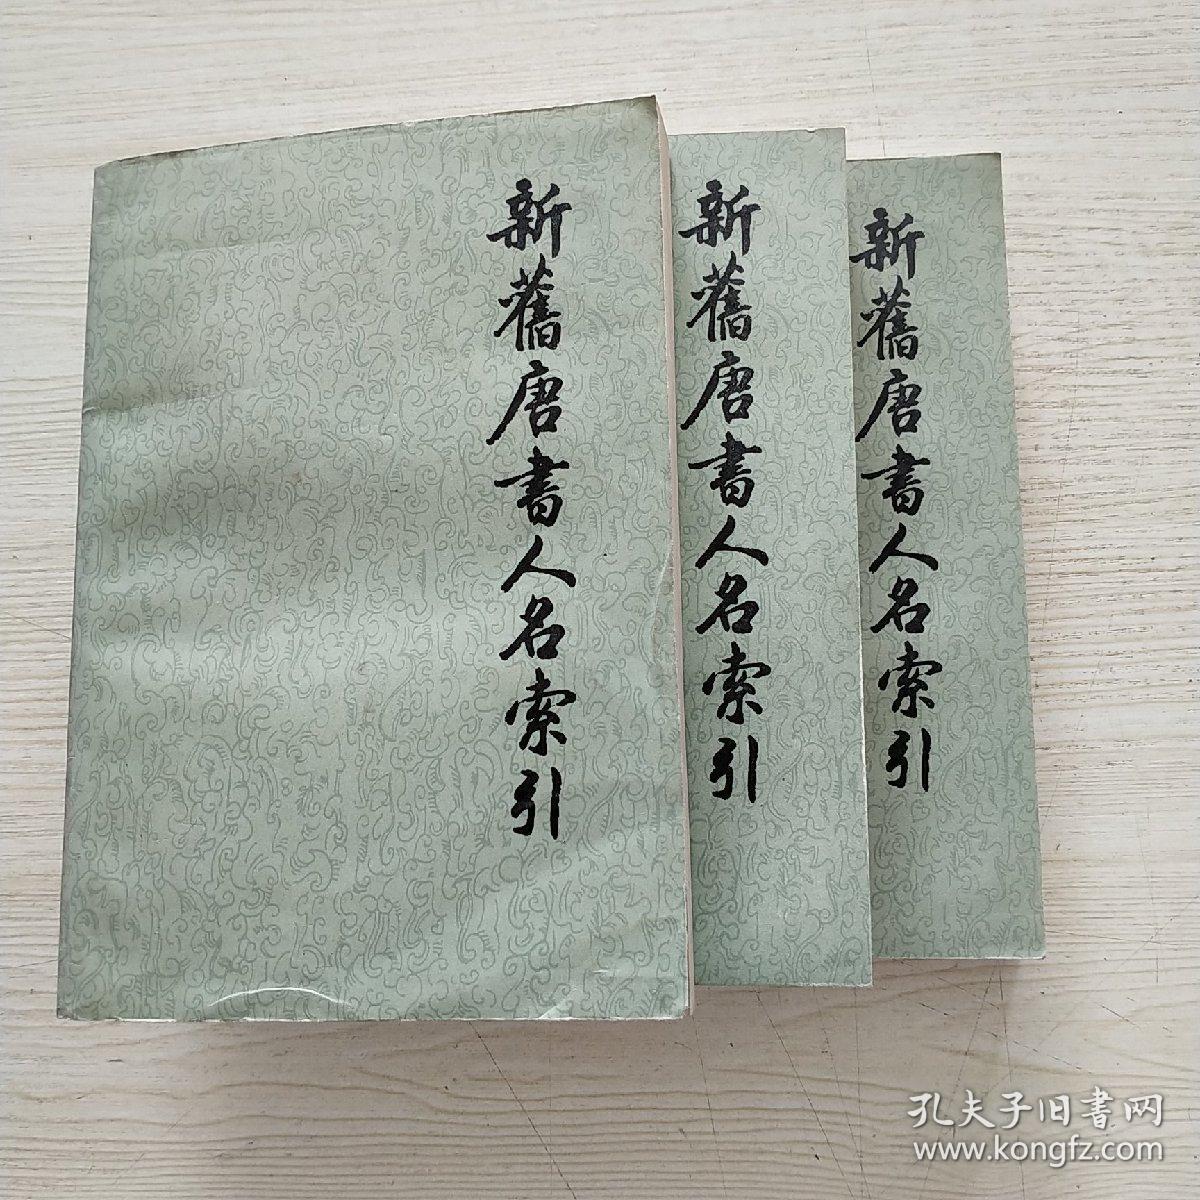 新舊唐書人名索引
新舊唐書人名索引
新舊唐書人名索引
孔夫子旧書网
www.kongfz.com